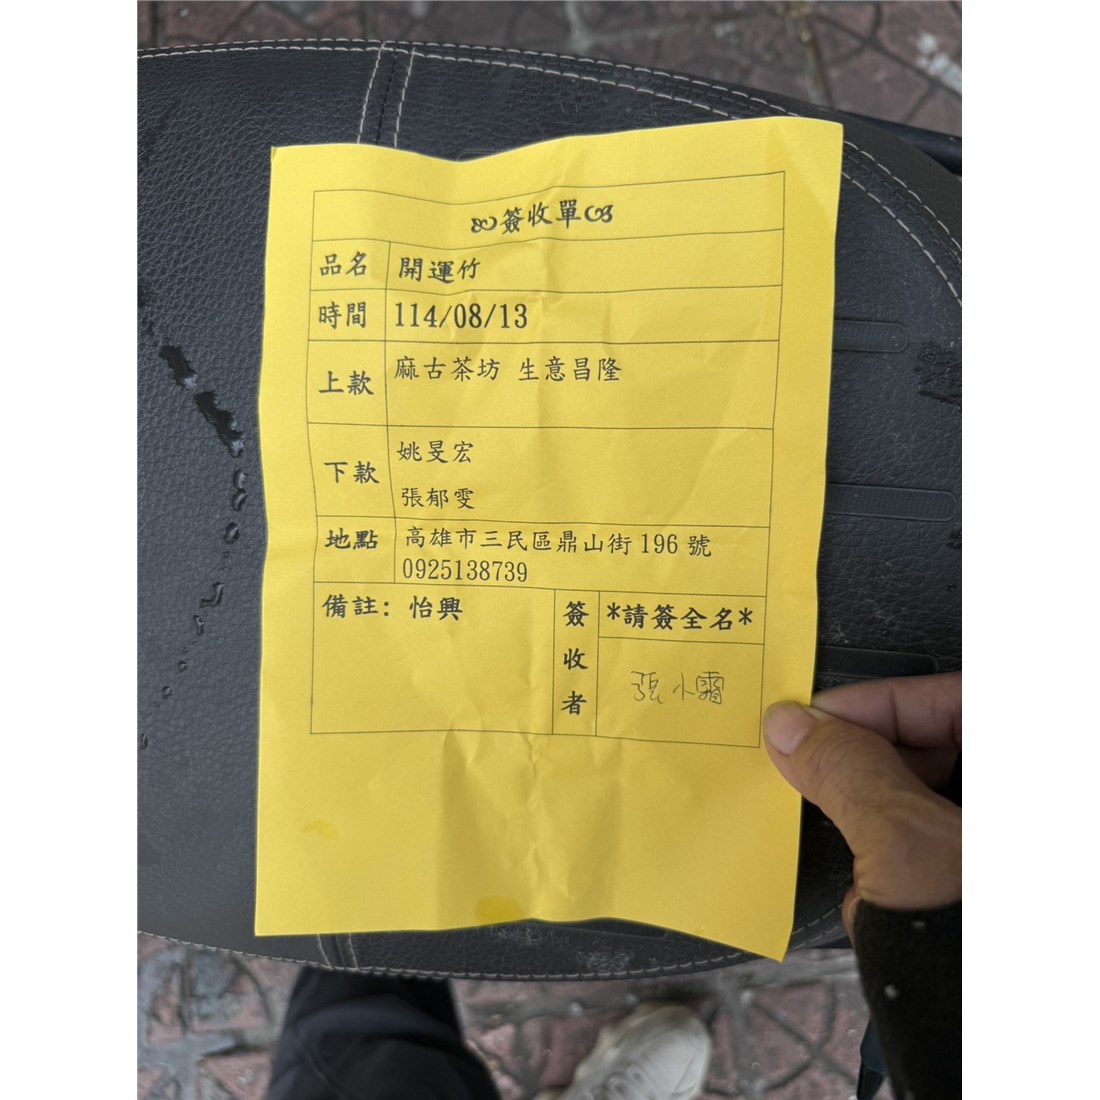 簽收單
品名 開運竹
時間 114/08/13
上款 麻古茶坊 生意昌隆
下款 姚旻宏
張郁雯
地點 高雄市三民區鼎山街 196 號
0925138739
備註: 怡興
簽收者 *請簽全名*
張小霜